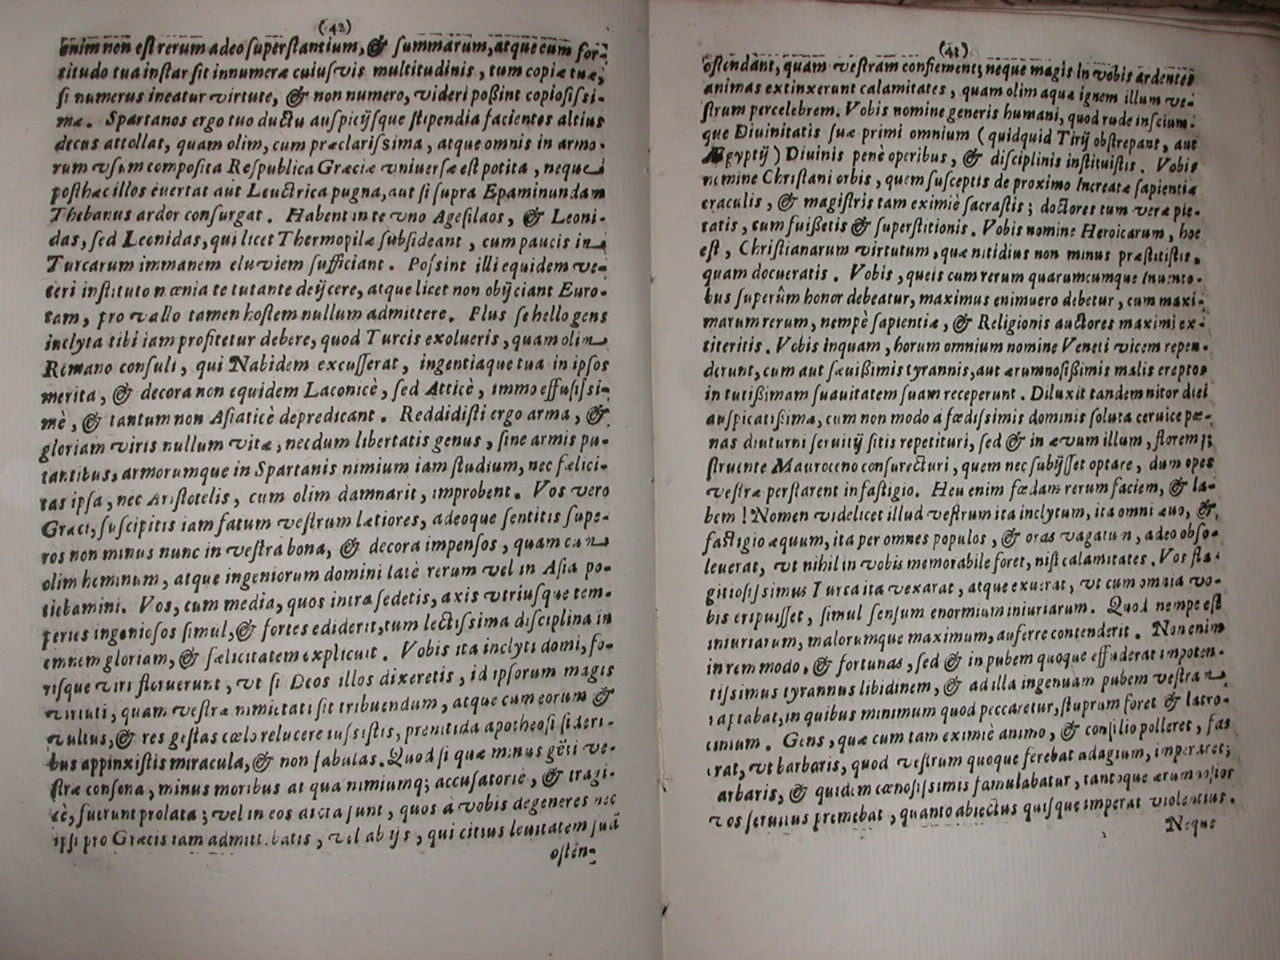 (42)
enim non est rerum adeo superstantium, & summarum, atque cum for-
titudo tua instar sit innumeræ cuiusvis multitudinis, tum copiæ tuæ,
si numerus ineatur virtute, & non numero, videri poßint copiosissi-
mæ. Spartanos ergo tuo ductu auspicijsque stipendia facientes altius
decus attollat, quam olim, cum præclarissima, atque omnis in armo-
rum usum composita Respublica Græciæ vniuersæ est potita, neque
posthac illos euertat aut Leuctrica pugna, aut si supra Epaminundam
Thebanus ardor consurgat. Habent in te vno Agesilaos, & Leoni-
das, sed Leonidas, qui licet Thermopilæ subsideant, cum paucis in
Turcarum immanem eluviem sufficiant. Possint illi equidem ve-
teri instituto mœnia te tutante deijcere, atque licet non obijciant Euro-
tam, pro vallo tamen hostem nullum admittere. Plus se hello gens
inclyta tibi iam profitetur debere, quod Turcis exolueris, quam olim
Romano consuli, qui Nabidem excusserat, ingentiaque tua in ipsos
merita, & decora non equidem Laconicè, sed Atticè, immo effusissi-
mè, & tantum non Asiaticè depredicant. Reddidisti ergo arma, &
gloriam viris nullum vitæ, necdum libertatis genus, sine armis pu-
tantibus, armorumque in Spartanis nimium iam studium, nec fælici-
tas ipsa, nec Aristotelis, cum olim damnarit, improbent. Vos vero
Græci, suscipitis iam fatum vestrum lætiores, adeoque sentitis supe-
ros non minus nunc in vestra bona, & decora impensos, quam cum
olim hominum, atque ingeniorum domini latè rerum vel in Asia po-
tiebamini. Vos, cum media, quos intra sedetis, axis utriusque tem-
peries ingeniosos simul, & fortes ediderit, tum lectissima disciplina in
omnem gloriam, & fælicitatem explicuit. Vobis ita inclyti domi, fo-
risque viri floruerunt, ut si Deos illos dixeretis, id ipsorum magis
virtuti, quam vestræ nimietati sit tribuendum, atque cum eorum &
vultus, & res gestas cœlo relucere iussistis, prenitida apotheosi sideri-
bus appinxistis miracula, & non fabulas. Quod si quæ minus gẽti ve-
stræ consona, minus moribus at qua nimiumq; accusatoriè, & tragi-
cè, fuerunt prolata; vel in eos dicta sunt, quos à vobis degeneres nec
ipsi pro Græcis iam admittebatis, vel ab ijs, qui citius leuitatem suã
osten-
(43)
ostendant, quam vestram confirment; neque magis in vobis ardentes
animas extinxerunt calamitates, quam olim aquæ ignem illum ve-
strum percelebrem. Vobis nomine generis humani, quod rude inscium-
que Diuinitatis suæ primi omnium (quidquid Tirij obstrepant, aut
Ægyptij) Diuinis penè operibus, & disciplinis instituistis. Vobis
nomine Christiani orbis, quem susceptis de proximo Increatæ sapientiæ
oraculis, & magistris tam eximiè sacrastis; doctores tum veræ pie-
tatis, cum fuißetis & superstitionis. Vobis nomine Heroicarum, hoc
est, Christianarum virtutum, quæ nitidius non minus præstitistis,
quam docueratis. Vobis, queis cum rerum quarumcumque Inuento-
bus superûm honor debeatur, maximus enimuero debetur, cum maxi-
marum rerum, nempè sapientiæ, & Religionis auctores maximi ex-
titeritis. Vobis inquam, horum omnium nomine Veneti vicem repen-
derunt, cum aut sæuißimis tyrannis, aut ærumnosißimis malis ereptos
in tutißimam suauitatem suam receperunt. Diluxit tandem nitor diei
auspicatißima, cum non modo à fœdissimis dominis soluta ceruice pœ-
nas diuturni seruitij sitis repetituri, sed & in æuum illum, florem;
struente Mauroceno consurecturi, quem nec subijsset optare, dum opes
vestræ perstarent in fastigio. Heu enim fœdam rerum faciem, & la-
bem! Nomen videlicet illud vestrum ita inclytum, ita omni æuo, &
fastigio æquum, ita per omnes populos, & oras vagatum, adeo obso-
leuerat, ut nihil in vobis memorabile foret, nisi calamitates. Vos fla-
gitiosissimus Turca ita vexarat, atque exuerat, ut cum omnia vo-
bis eripuisset, simul sensum enormium iniuriarum. Quod nempe est
iniuriarum, malorumque maximum, auferre contenderit. Non enim
in rem modo, & fortunas, sed & in pubem quoque effuderat impoten-
tissimus tyrannus libidinem, & ad illa ingenuam pubem vestram
raptabat, in quibus minimum quod peccaretur, stuprum foret & latro-
cinium. Gens, quæ cum tam eximiè animo, & consilio polleret, fas
erat, ut barbaris, quod vestrum quoque ferebat adagium, imperaret;
arbaris, & quidem cœnosissimis famulabatur, tantoque ærumnosior
vos seruitus premebat, quanto abiectus quisque imperat violentius.
Neque